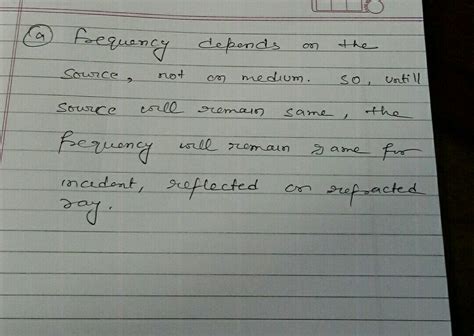 (a) frequency depends on the
source, not on medium. so, untill
source will remain same, the
frequency will remain same for
incident, reflected or refracted
ray.